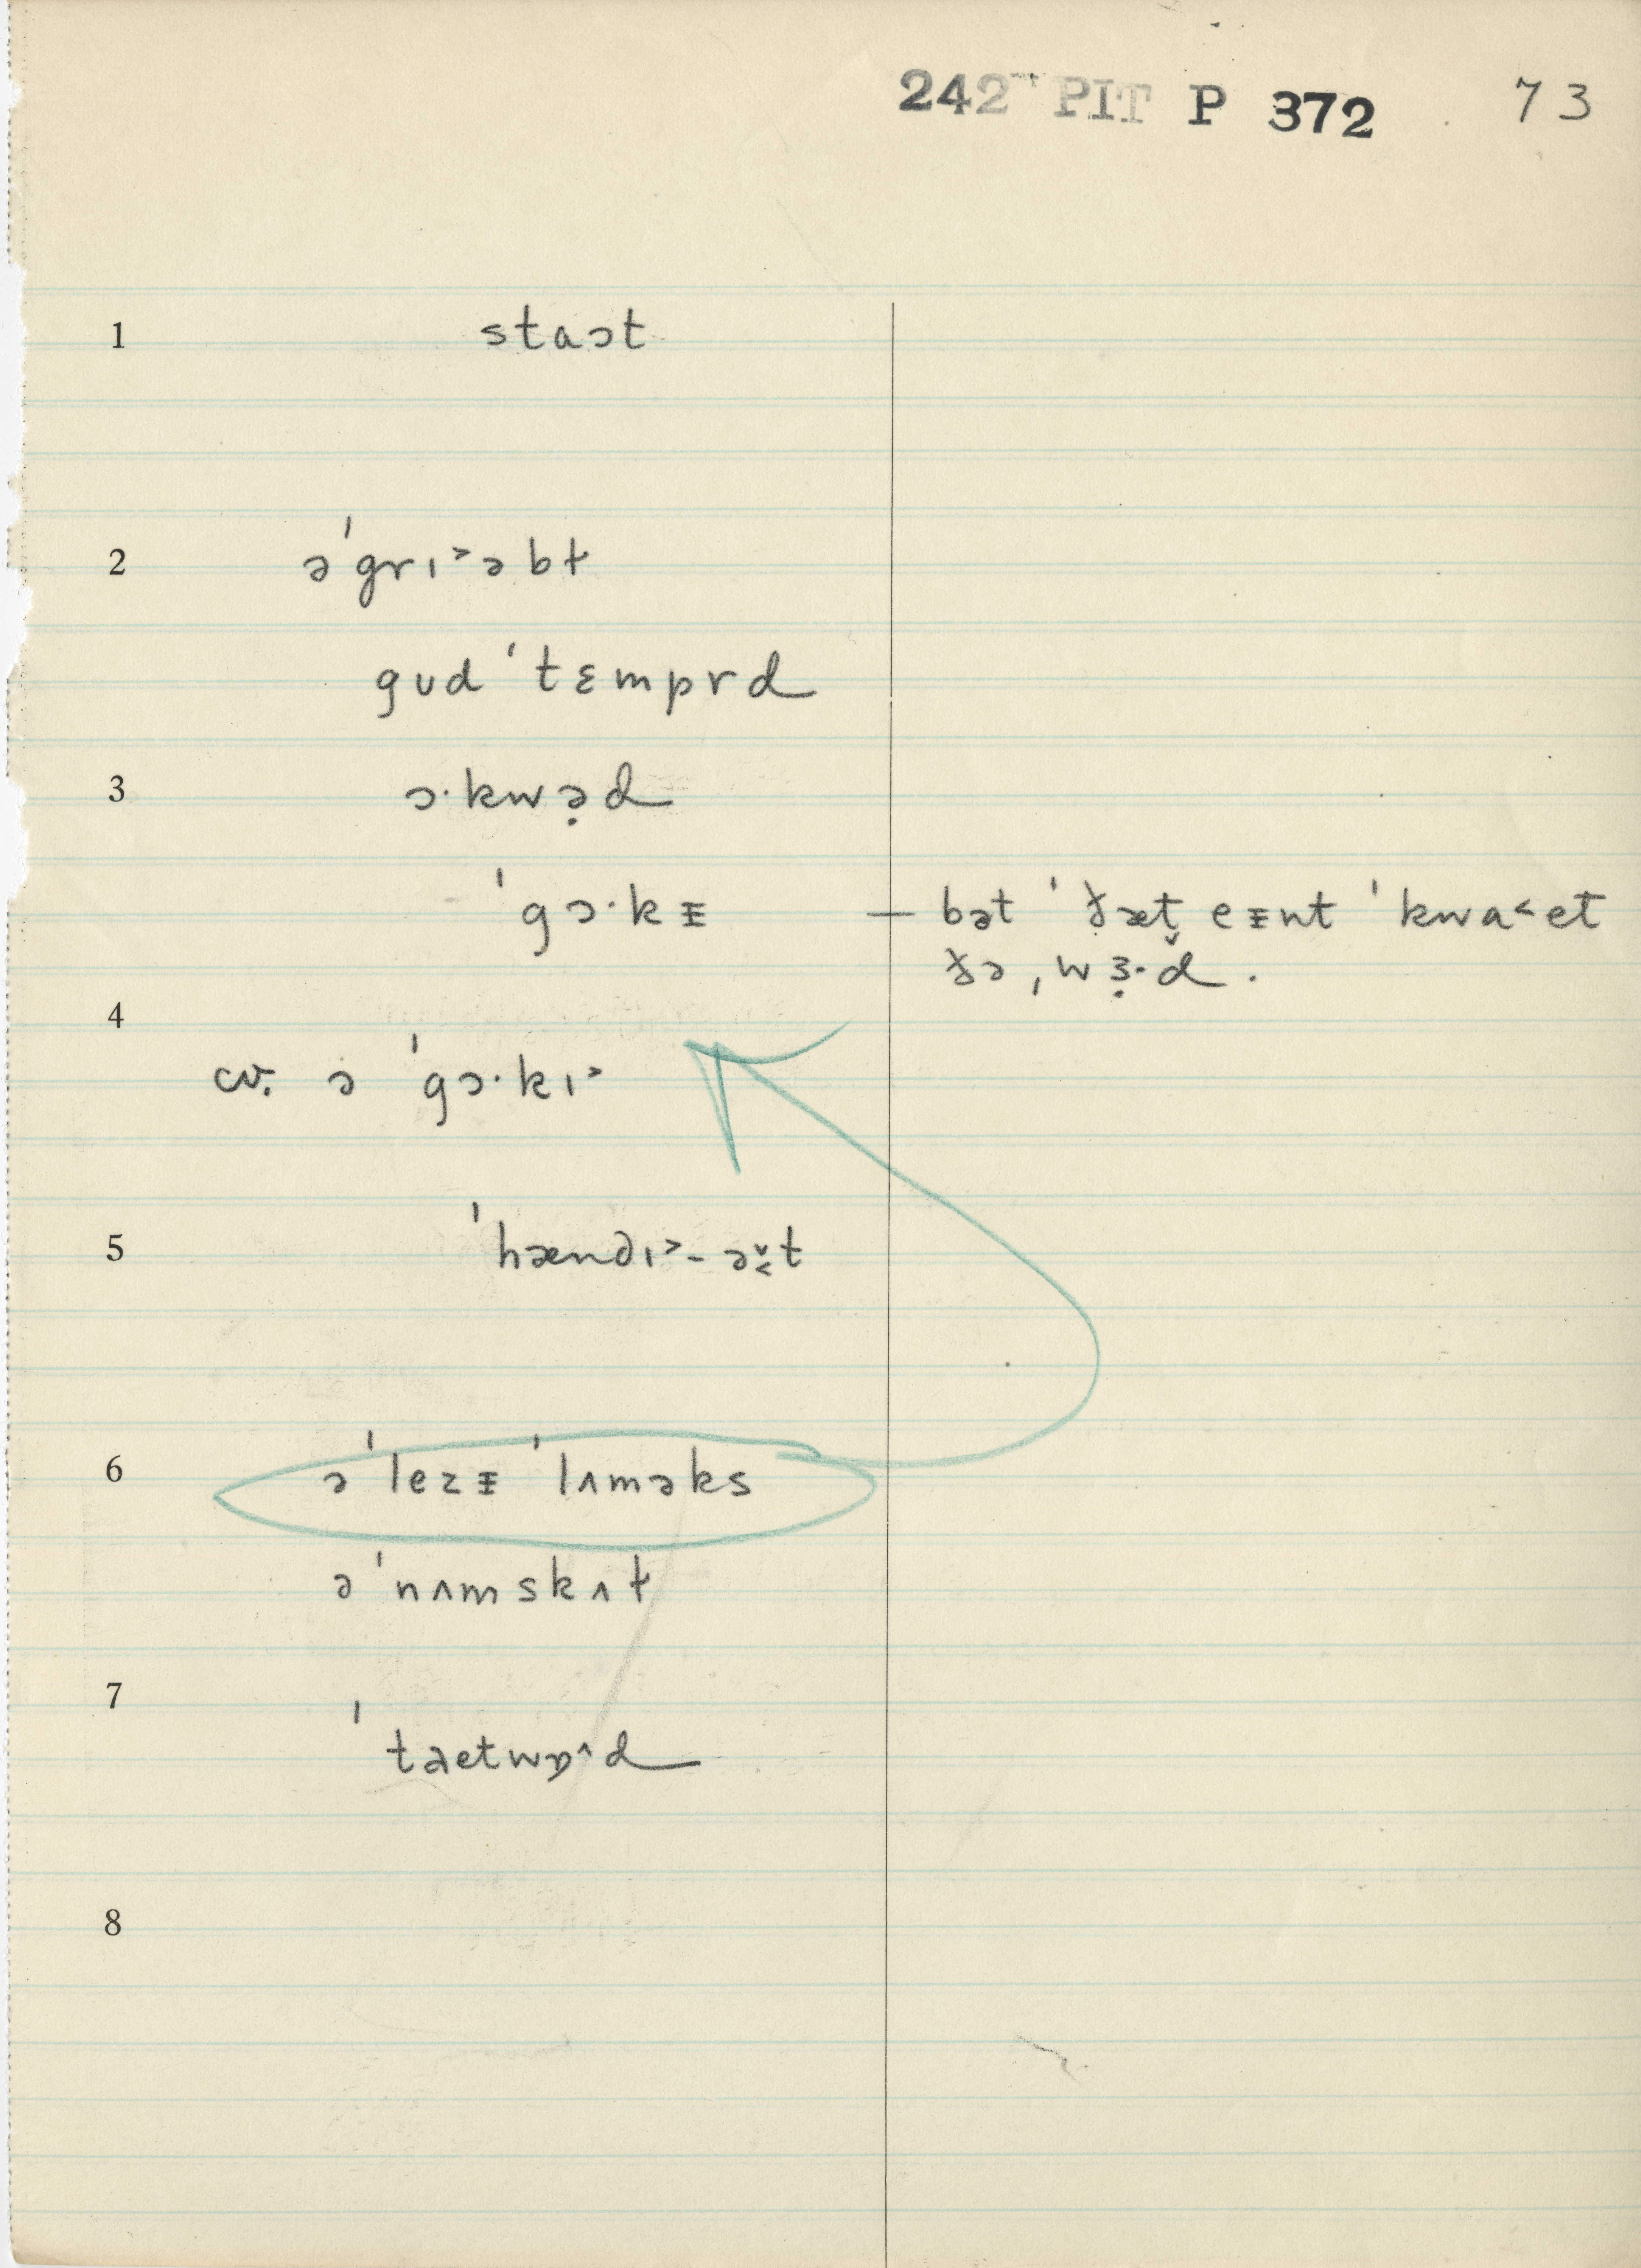 242 PIT P 372 73
1 staɔt
2 əˈgrɪ˃əbɫ
gᴜd ˈtɛmprd
3 ɔ·kwə̣d
ˈgɔ·kᵻ — bət ˈðæt̬ eᵻnt ˈkwa˂et
ðə ˌwɜ̣·d .
4
cv. ə ˈgɔ·kɪ˃
5 ˈhændɪ˃-əʊ̯t
6 əˈlezᵻ ˈlʌməks
əˈnʌmskʌɫ
7
ˈtaetwɒ^d
8